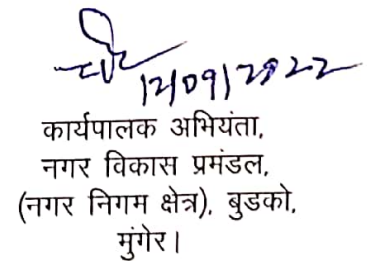 12/09/2022
कार्यपालक अभियंता,
नगर विकास प्रमंडल,
(नगर निगम क्षेत्र), बुडको,
मुंगेर।